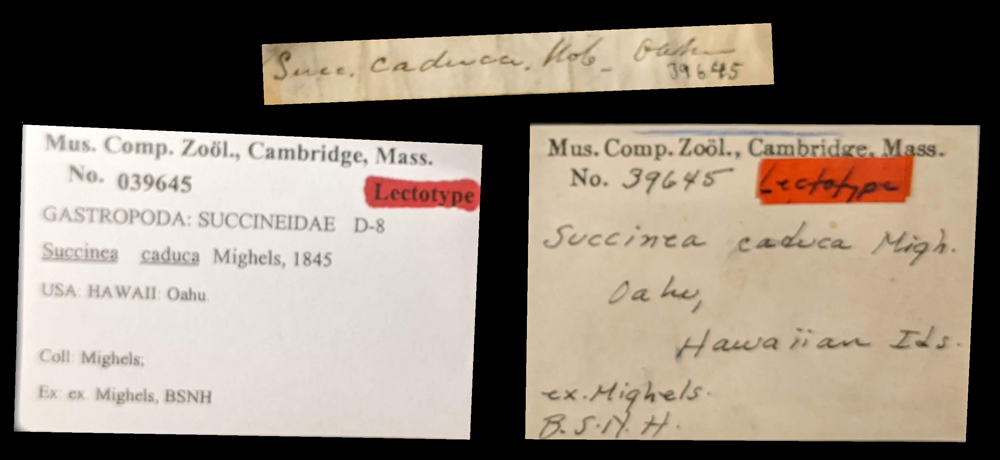 Succ. caduca. Nob_ Oahu
39645
Mus. Comp. Zoöl., Cambridge, Mass.
No. 039645
Lectotype
GASTROPODA: SUCCINEIDAE D-8
Succinea caduca Mighels, 1845
USA: HAWAII: Oahu.
Coll: Mighels;
Ex: ex. Mighels, BSNH
Mus. Comp. Zoöl., Cambridge, Mass.
No. 39645 Lectotype
Succinea caduca Migh.
Oahu,
Hawaiian Ids.
ex. Mighels.
B.S.N.H.